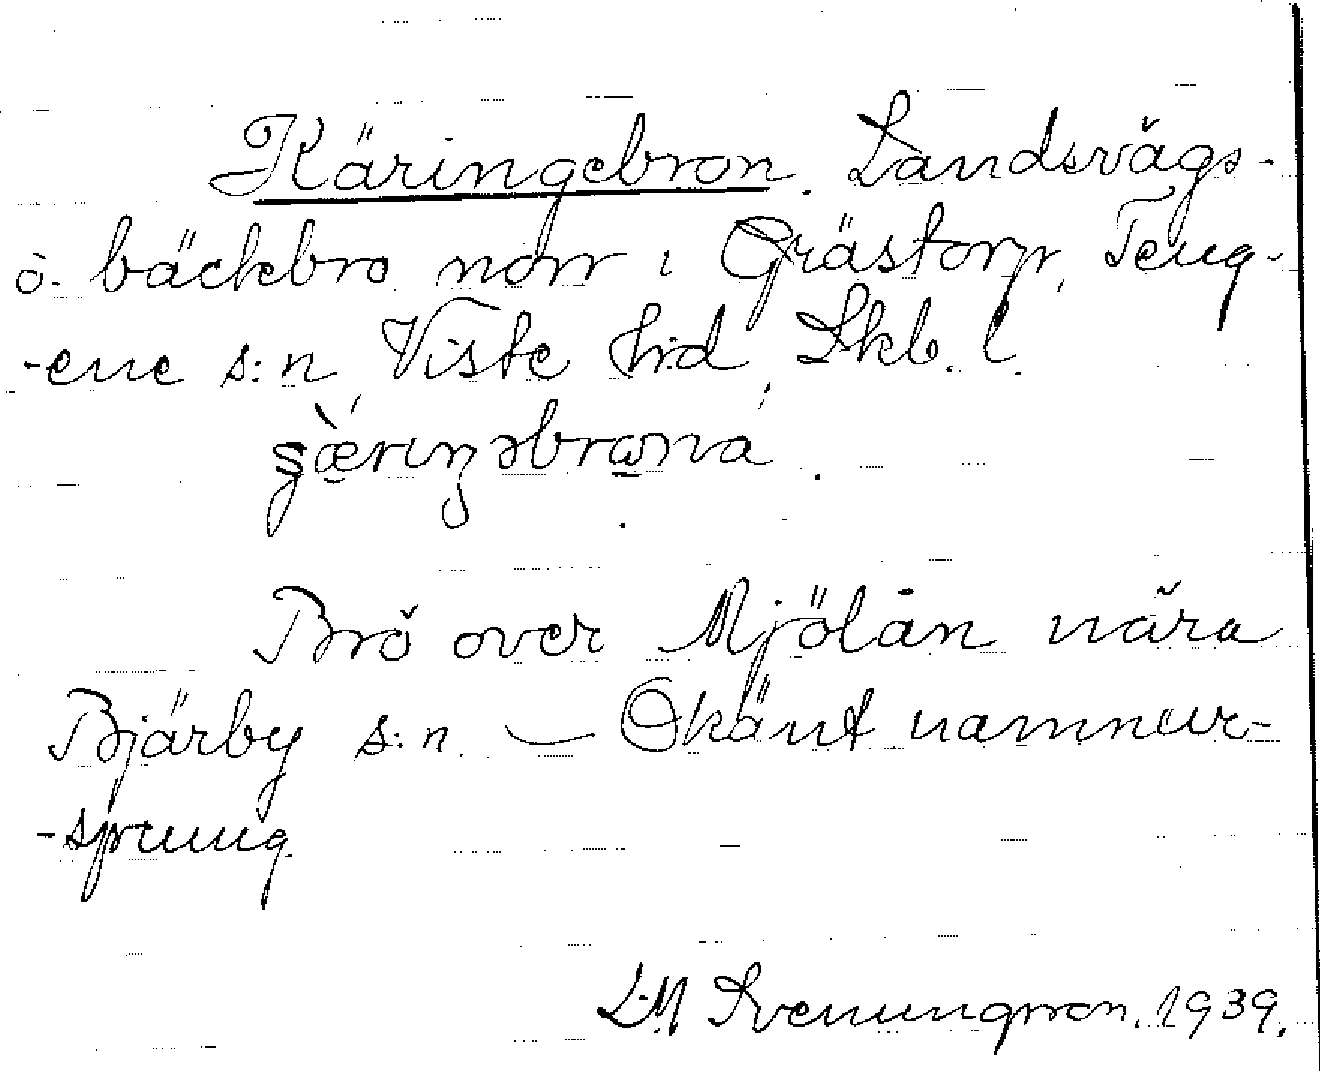 Käringebron. Landsvägs-
o. bäckbro norr i Grästorp, Teng-
-ene s:n, Viste hrd, Skb. l.
Bro över Mjölån nära
Bjärby s:n. — Okänt namnur-
-sprung.
LM Svenungsson. 1939.